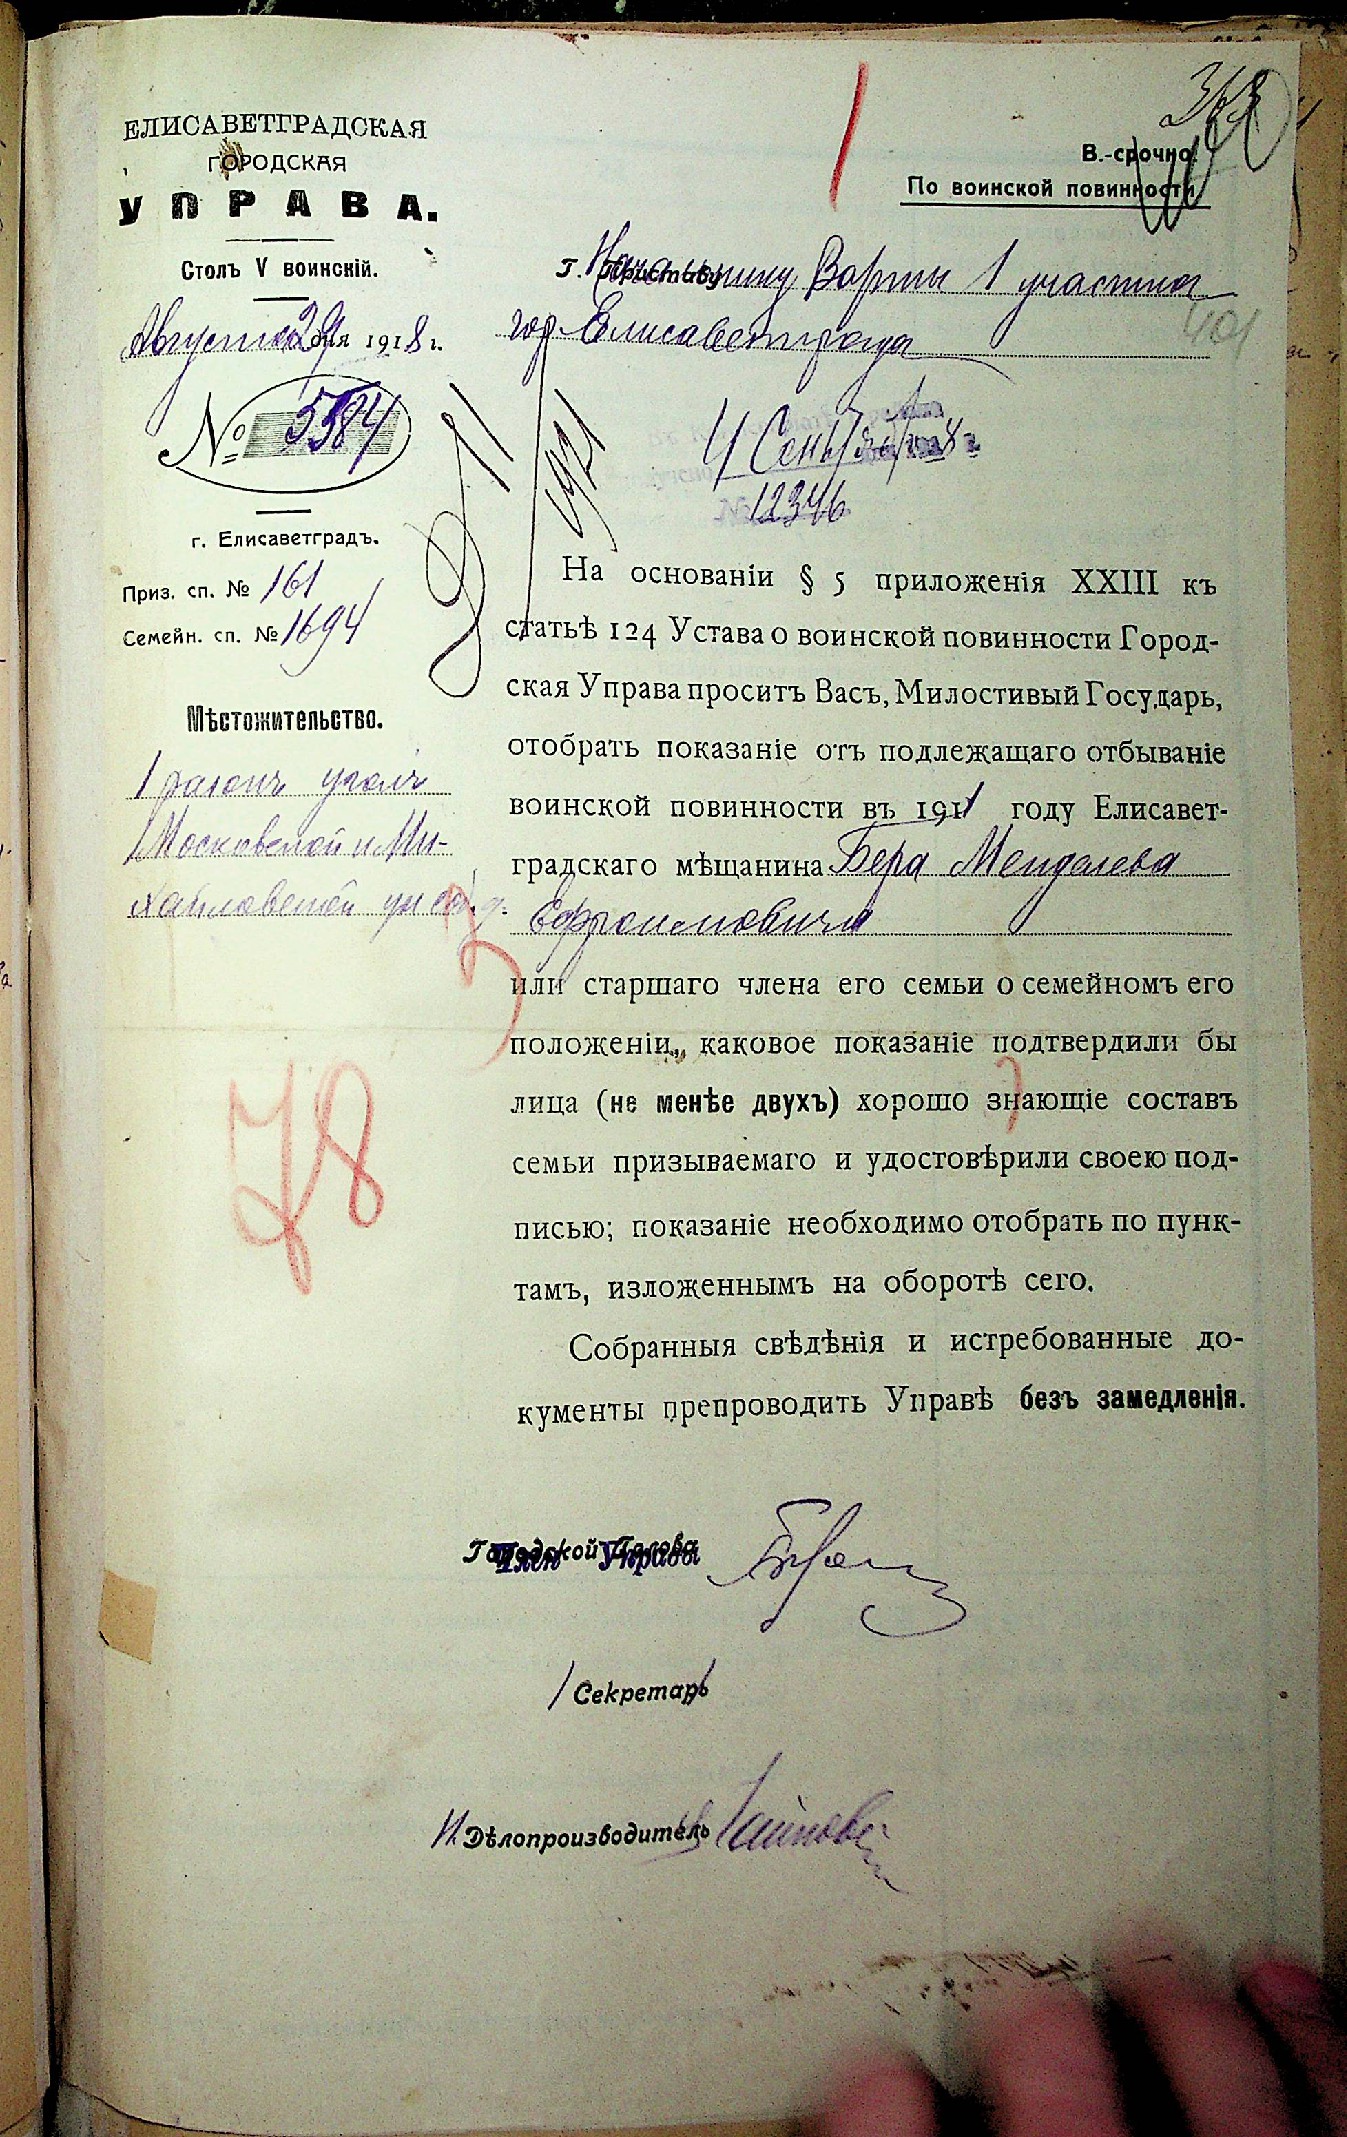 ЕЛИСАВЕТГРАДСКАЯ
ГОРОДСКАЯ
УПРАВА.
Столъ V воинскій.
Августа 29 дня 1918 г.
№ 5584
г. Елисаветградъ.
Приз. сп. № 161
Семейн. сп. № 1694
Мѣстожительство.
1 районъ уголъ
Московской и Ми-
хайловской ул
78
363
В.-срочно.
По воинской повинности
401
Г. Приставу Начальнику Варты 1 участка
гор. Елисаветграда
4 Сент 1918 г.
№ 12346
На основаніи § 5 приложенія XXIII къ
статьѣ 124 Устава о воинской повинности Город-
ская Управа проситъ Васъ, Милостивый Государь,
отобрать показаніе отъ подлежащаго отбываніе
воинской повинности въ 1911 году Елисавет-
градскаго мѣщанина Бера Менделева
Ефроимовича
или старшаго члена его семьи о семейномъ его
положеніи,, каковое показаніе подтвердили бы
лица (не менѣе двухъ) хорошо знающіе составъ
семьи призываемаго и удостовѣрили своею под-
писью; показаніе необходимо отобрать по пунк-
тамъ, изложеннымъ на оборотѣ сего.
Собранныя свѣдѣнія и истребованные до-
кументы препроводить Управѣ безъ замедленія.
Городской Голова
Член Управы
Секретарь
И. Дѣлопроизводитель